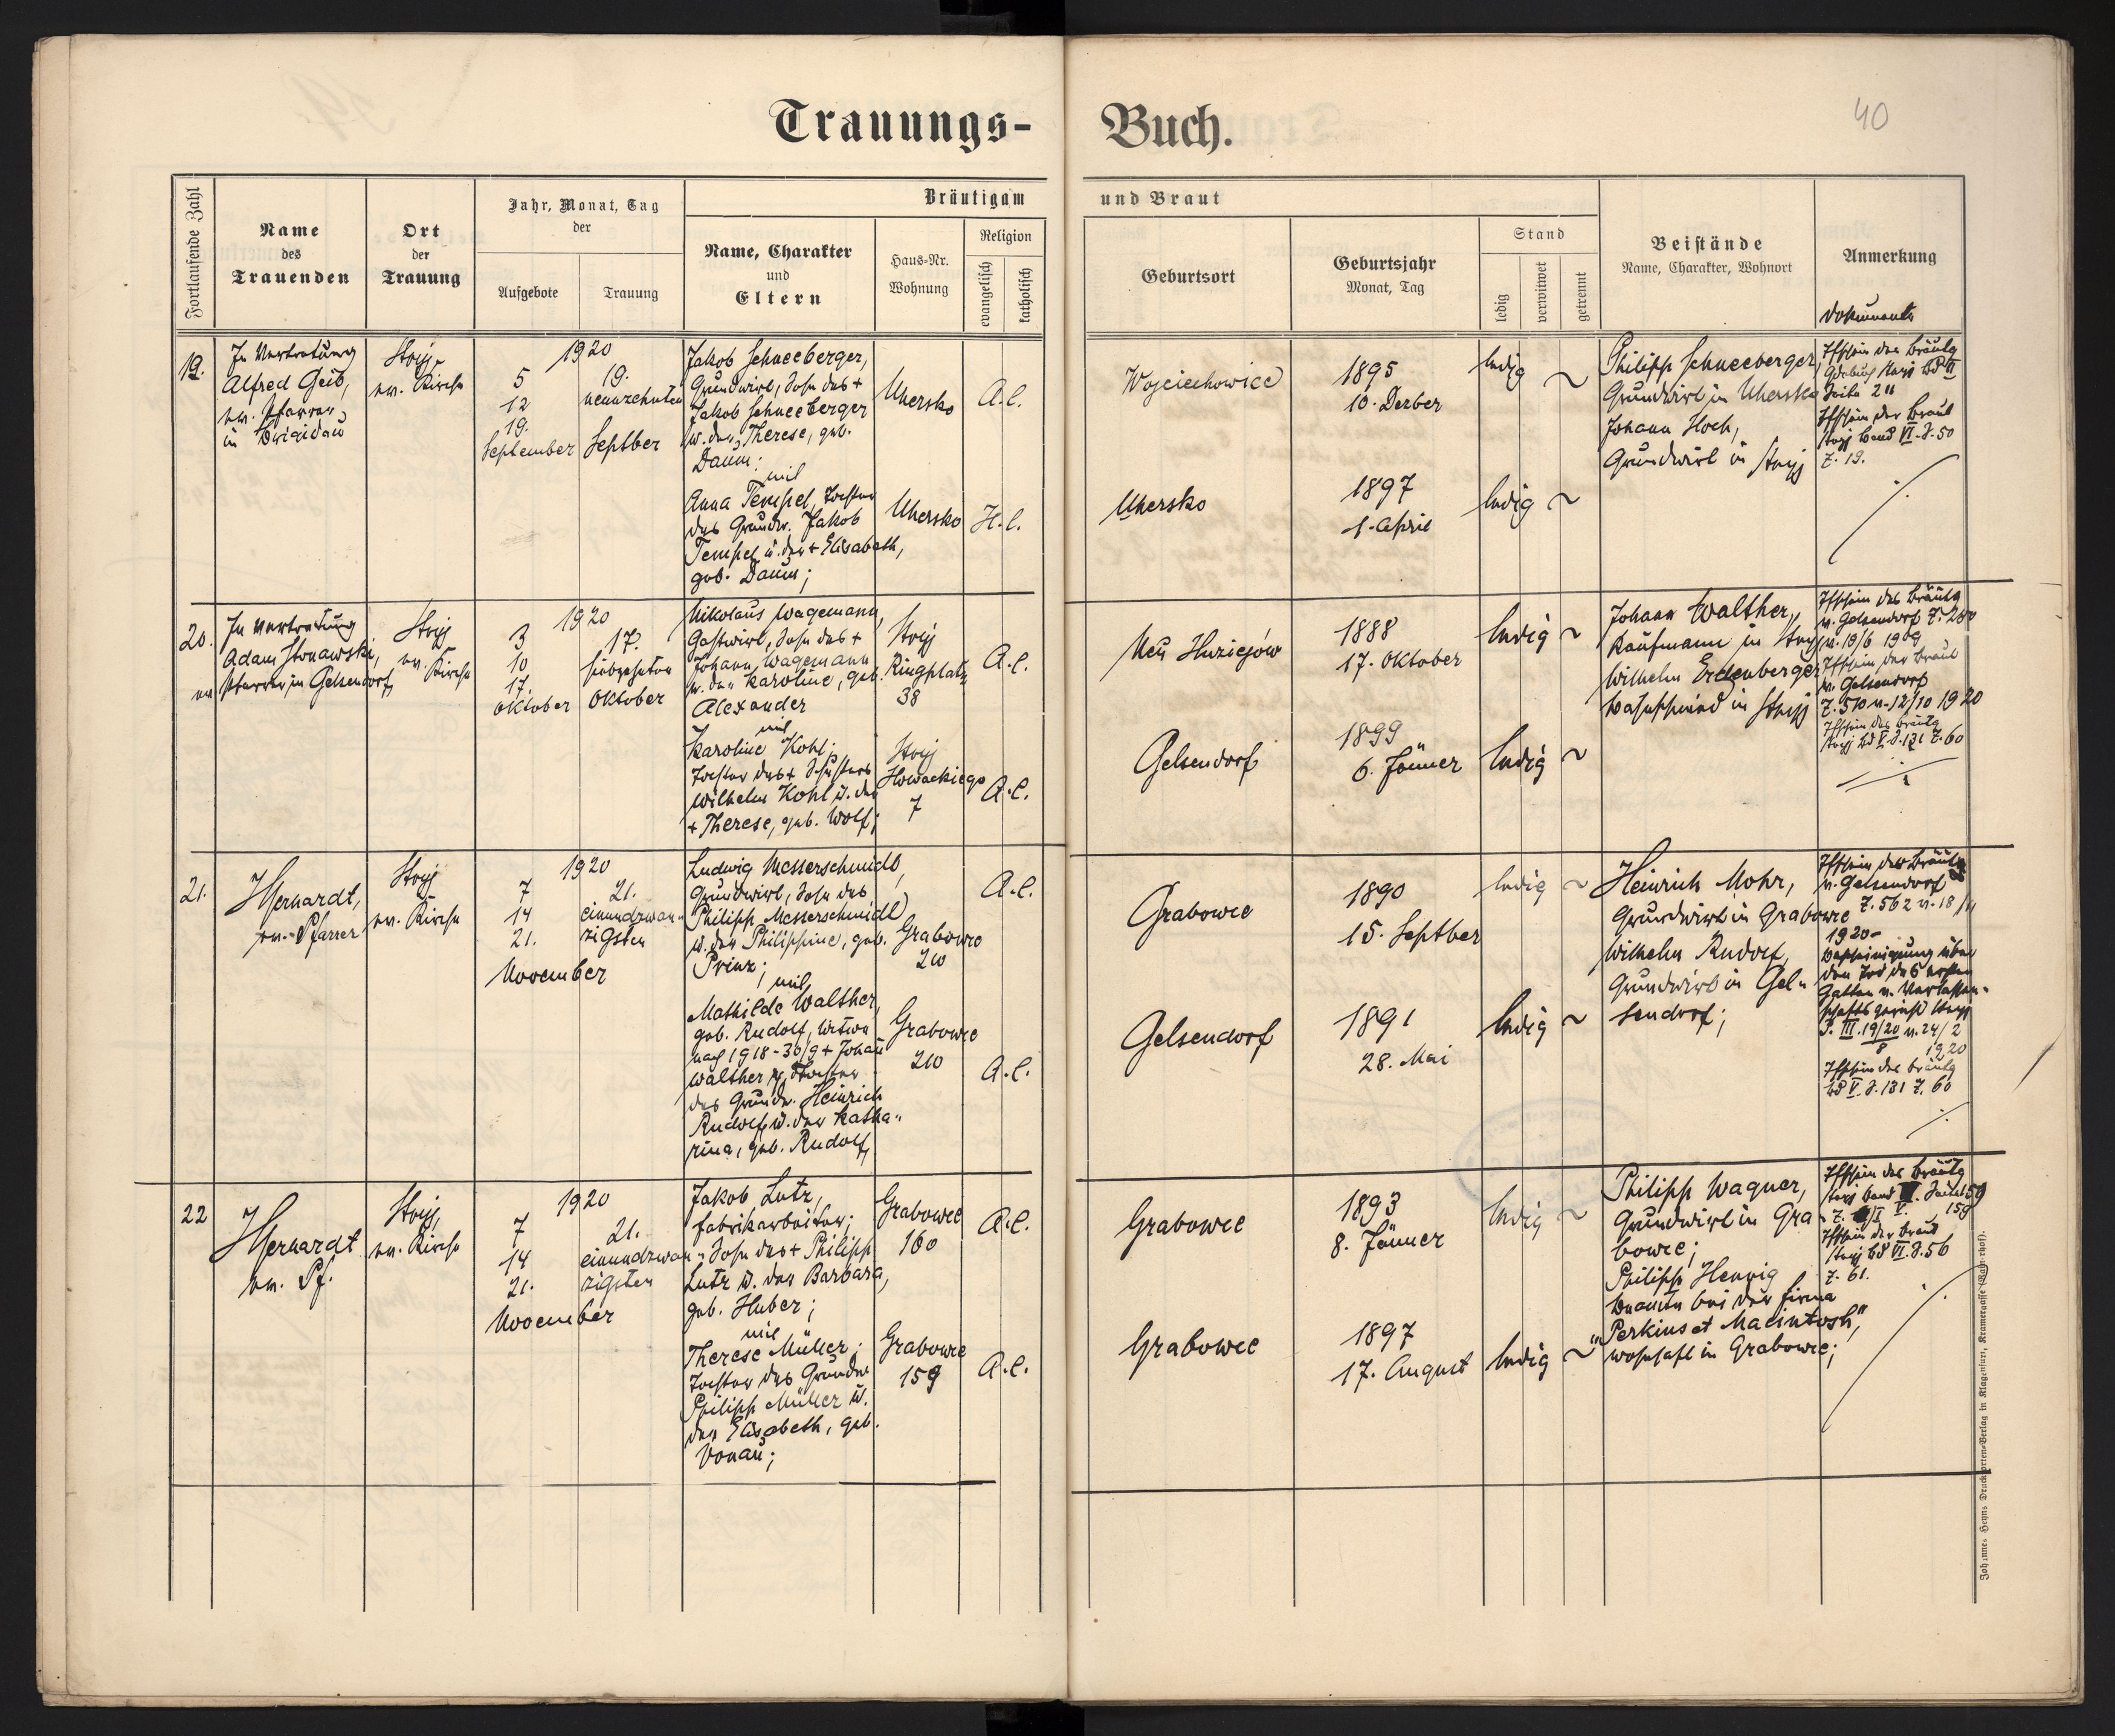 Trauungs-
Buch.
40
Fortlaufende Zahl
Name
des
Trauenden
Ort
der
Trauung
Jahr, Monat, Tag
der
Aufgebote
Trauung
Bräutigam
Name, Charakter
und
Eltern
Haus-Nr.
Wohnung
Religion
evangelisch
katholisch
und Braut
Geburtsort
Geburtsjahr
Monat, Tag
Stand
ledig
verwitwet
getrennt
Beistände
Name, Charakter, Wohnort
Anmerkung
Dokumente
19.
In Vertretung
Alfred Geib,
ev. Pfarrer
in Brigidau
Stryj,
ev. Kirche
1920
5
12
19.
September
19.
neunzehnten
Septber
Jakob Schneeberger,
Grundwirt, Sohn des +
Jakob Schneeberger
u. der Therese, geb.
Daum;
mit
Anna Tempel, Tochter
des Grundw. Jakob
Tempel u. der + Elisabeth,
geb. Daum;
Uhersko
Uhersko
A.C.
H.C.
Wojciechowice
Uhersko
1895
10. Dezber
1897
1. April
ledig
ledig
Philipp Schneeberger,
Grundwirt in Uhersko
Johann Hoch,
Grundwirt in Stryj
Tfschein des Bräutg
Seite 2
Tfschein der Braut
Stryj Band VI. S. 50
Z. 19.
20.
In Vertretung
Adam Stonawski,
ev. Pfarrer in Gelsendorf
Stryj
ev. Kirche
1920
3
10
17.
Oktober
17.
siebzehnten
Oktober
Nikolaus Wagemann,
Gastwirt, Sohn des +
Johann Wagemann
u. der Karoline, geb.
Alexander
mit
Karoline Kohl;
Tochter des + Schusters
Wilhelm Kohl u. der
+ Therese, geb. Wolf;
Stryj
Ringplatz
38
Stryj
7
A.C.
A.C.
Neu
Gelsendorf
1888
17. Oktober
1899
6. Jänner
ledig
ledig
Johann Walther,
Kaufmann in Stryj
Wilhelm
in Stryj
Tfschein des Bräutg
v. Gelsendorf Z. 280
v. 19/6 1909
Tfschein der Braut
v. Gelsendorf
Z. 510 v. 12/10 1920
Tfschein des Bräutg
Stryj Bd V. S. 131 Z. 60
21.
JGerhardt,
ev. Pfarrer
Stryj
ev. Kirche
1920
7
14
21.
November
21.
einundzwan-
zigsten
Ludwig Messerschmidt,
Grundwirt, Sohn des
Philipp Messerschmidt
u. der Philippine, geb.
Prinz;
mit
Mathilde Walther,
geb. Rudolf, Witwe
nach 1918-30/9 + Johann
Walther, Tochter
des Grundw. Heinrich
Rudolf u. der Katha-
rina, geb. Rudolf
Grabowce
210
Grabowce
210
A.C.
A.C.
Grabowce
Gelsendorf
1890
15. Septber
1891
28. Mai
ledig
ledig
Heinrich Mohr,
Grundwirt in Grabowce
Wilhelm Rudolf,
Grundwirt in Gel-
sendorf;
Tfschein des Bräutg
v. Gelsendorf
Z. 562 v. 18/11
1920-
Bescheinigung über
den Tod des ersten
Gatten v. Verlassen-
schaftsgericht Stryj
P. III. 19/20 v. 24/2
8 1920
Tfschein des Bräutg
Bd V. S. 131 Z. 60
22
JGerhardt
ev. Pf.
Stryj,
ev. Kirche
1920
7
14
21.
November
21.
einundzwan-
zigsten
Jakob Lutz,
Fabriksarbeiter;
Sohn des + Philipp
Lutz u. der Barbara,
geb. Huber;
mit
Therese Müller;
Tochter des Grundw
Philipp Müller u.
der Elisabeth, geb.
Donau;
Grabowce
160
Grabowce
159
A.C.
A.C.
Grabowce
Grabowce
1893
8. Jänner
1897
17. August
ledig
ledig
Philipp Wagner,
Grundwirt in Gra
bowce;
Philipp Hennig
Beamter bei der Firma
"Perkins et Macintosh",
wohnhaft in Grabowce;
Tfschein des Bräutg
Tfschein der Braut
Stryj Bd VI. S. 56
Z. 61.
Johannes Heyns Druck orten-Verlag in Klagenfurt, Kramergasse